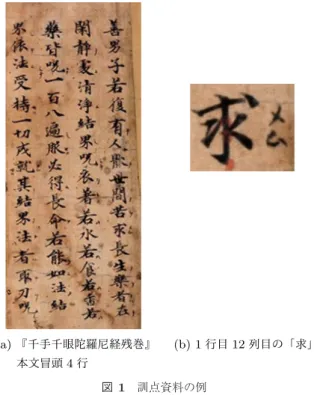 善男子若復有人厭世間苦求長生樂者在
閑靜處清淨結界呪衣著若水若食若香若
藥皆呪一百八遍服必得長命若能如法結
界依法受持一切成就其結界法者取刀呪
求
メム
a) 『千手千眼陀羅尼経残巻』
本文冒頭 4 行
(b) 1 行目 12 列目の「求」
図 1 訓点資料の例